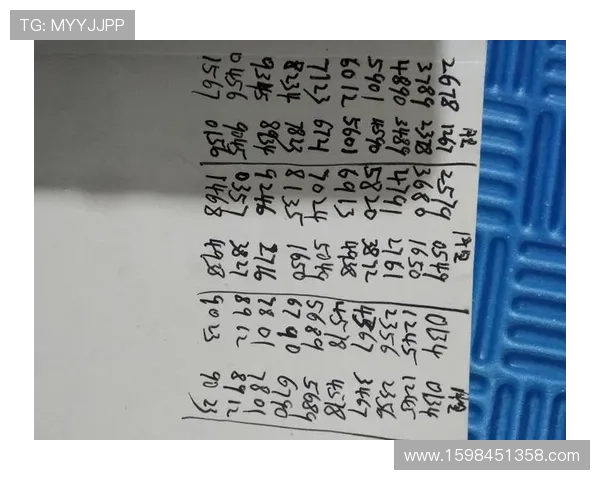 TG: MYYJJPP
2678 1267 2579 0549 0134 0134
3789 2378 3686 1650 1245 1245
4890 3489 4791 2761 2356 2356
5901 4590 5820 3872 3467
6012 5601 6913 4938 4578 4578
7123 674 7024 5049 5689 5689
8234 7823 8135 1650 6790 6790
9345 8934 9246 2716 7801 7801
0456 9045 0357 3827 8912 8912
1567 0156 1468 4938 9023 9023
www.1598451358.com